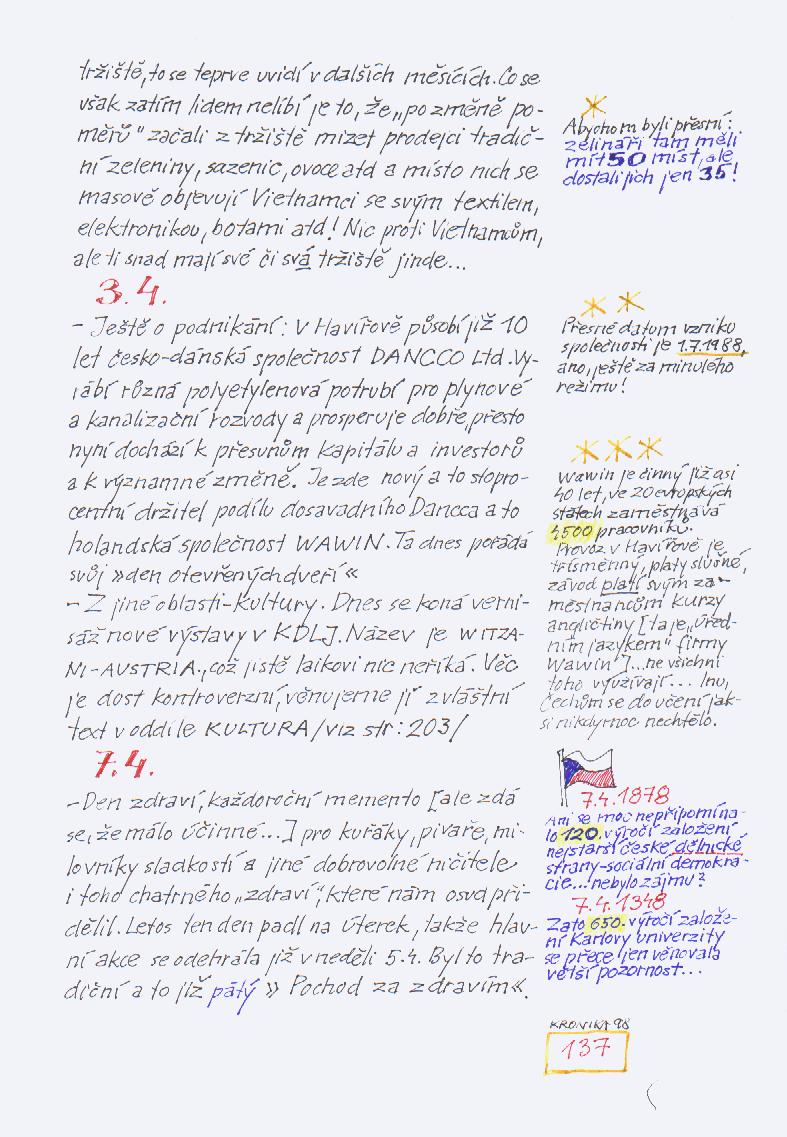 tržiště, to se teprve uvidí v dalších měsících. Co se
však zatím lidem nelíbí je to, že „po změně po-
měrů" začali z tržiště mizet prodejci tradič-
ní zeleniny, sazenic, ovoce atd a místo nich se
masově objevují Vietnamci se svým textilem,
elektronikou, botami atd! Nic proti Vietnamcům,
ale ti snad mají své či svá tržiště jinde...
3.4.
- Ještě o podnikání: V Havířově působí již 10
let česko-dánská společnost DANCCO Ltd. Vy-
rábí různá polyetylenová potrubí pro plynové
a kanalizační rozvody a prosperuje dobře, přesto
nyní dochází k přesunům kapitálu a investorů
a k významné změně. Je zde nový a to stopro-
centní držitel podílu dosavadního Dancca a to
holandská společnost WAWIN. Ta dnes pořádá
svůj »den otevřených dveří«
- Z jiné oblasti-kultury. Dnes se koná verni-
sáž nové výstavy v KDLJ. Název je WITZA-
NI-AUSTRIA., což jistě laikovi nic neříká. Věc
je dost kontroverzní, věnujeme jí zvláštní
text v oddíle KULTURA /viz str: 203/
7.4.
- Den zdraví, každoroční memento [ale zdá
se, že málo účinné...] pro kuřáky, pivaře, mi-
lovníky sladkostí a jiné dobrovolné ničitele
i toho chatrného „zdraví", které nám osud při-
dělil. Letos ten den padl na úterek, takže hlav-
ní akce se odehrála již v neděli 5.4. Byl to tra-
diční a to již pátý » Pochod za zdravím«.
*
Abychom byli přesní:
zelináři tam měli
mít 50 míst, ale
dostali jich jen 35!
* *
Přesné datum vzniku
společnosti je 1.7.1988,
ano, ještě za minulého
režimu!
* * *
Wawin je činný již asi
40 let, ve 20 evropských
státech zaměstnává
4500 pracovníků.
Provoz v Havířově je
třísměnný, platy slušné,
závod platí svým za-
městnancům kurzy
angličtiny [ta je „úřed-
ním jazykem" firmy
Wawin]...ne všichni
toho využívají... Inu,
Čechům se do učení jak-
si nikdy moc nechtělo.
7.4.1878
Ani se moc nepřipomína-
lo 120. výročí založení
nejstarší české dělnické
strany-sociální demokra-
cie...nebylo zájmu?
7.4.1348
Zato 650. výročí založe-
ní Karlovy univerzity
se přece jen věnovala
větší pozornost...
KRONIKA 98
137